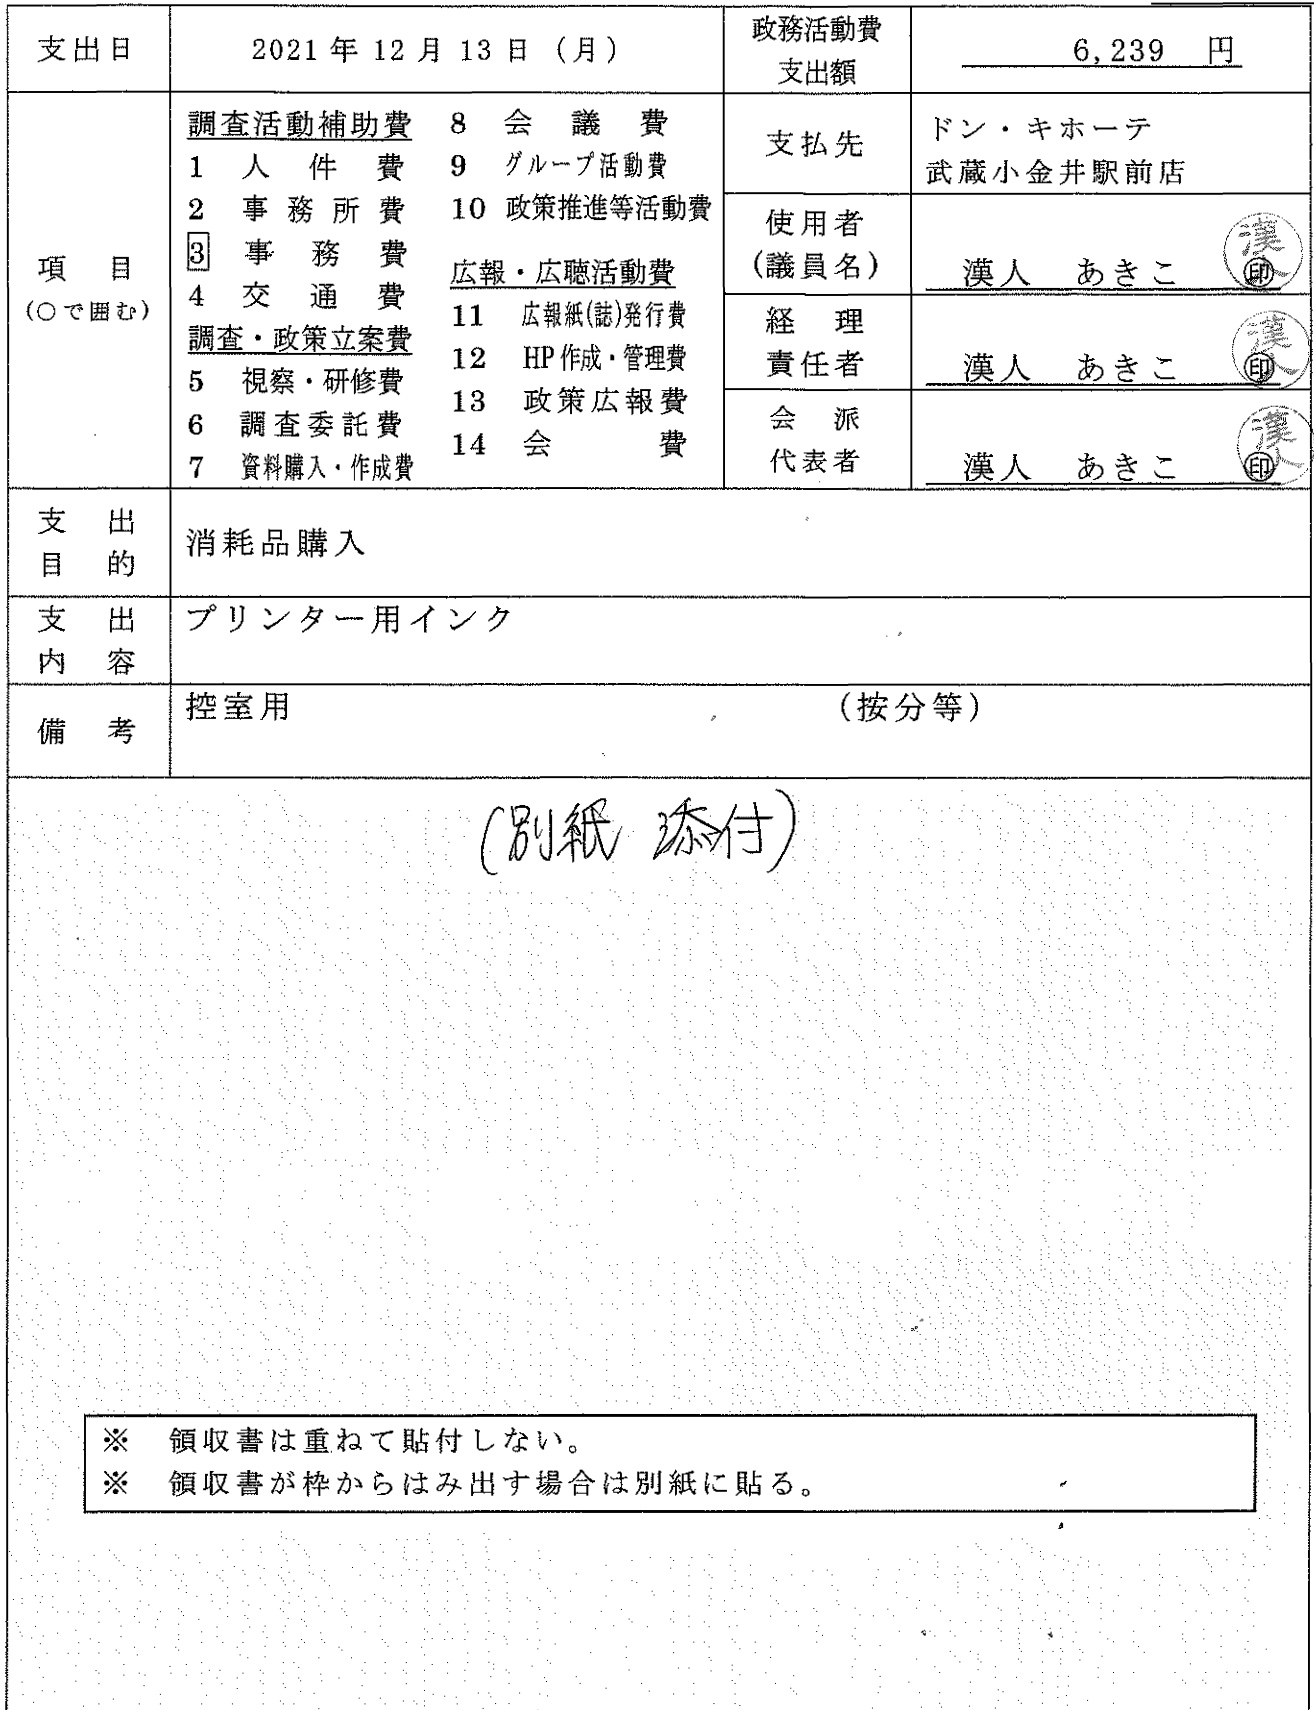 支出日 2021年 12月 13日 (月) 政務活動費 支出額 6,239 円
項 目
(○で囲む)
調査活動補助費
1 人件費
2 事務所費
3 事務費
4 交通費
調査・政策立案費
5 視察・研修費
6 調査委託費
7 資料購入・作成費
8 会議費
9 グループ活動費
10 政策推進等活動費
広報・広聴活動費
11 広報紙(誌)発行費
12 HP作成・管理費
13 政策広報費
14 会費
支払先 ドン・キホーテ
武蔵小金井駅前店
使用者
(議員名) 漢人 あきこ ㊞
漢人
経理
責任者 漢人 あきこ ㊞
漢人
会派
代表者 漢人 あきこ ㊞
漢人
支出
目的 消耗品購入
支出
内容 プリンター用インク
備考 控室用 (按分等)
(別紙 添付)
※ 領収書は重ねて貼付しない。
※ 領収書が枠からはみ出す場合は別紙に貼る。